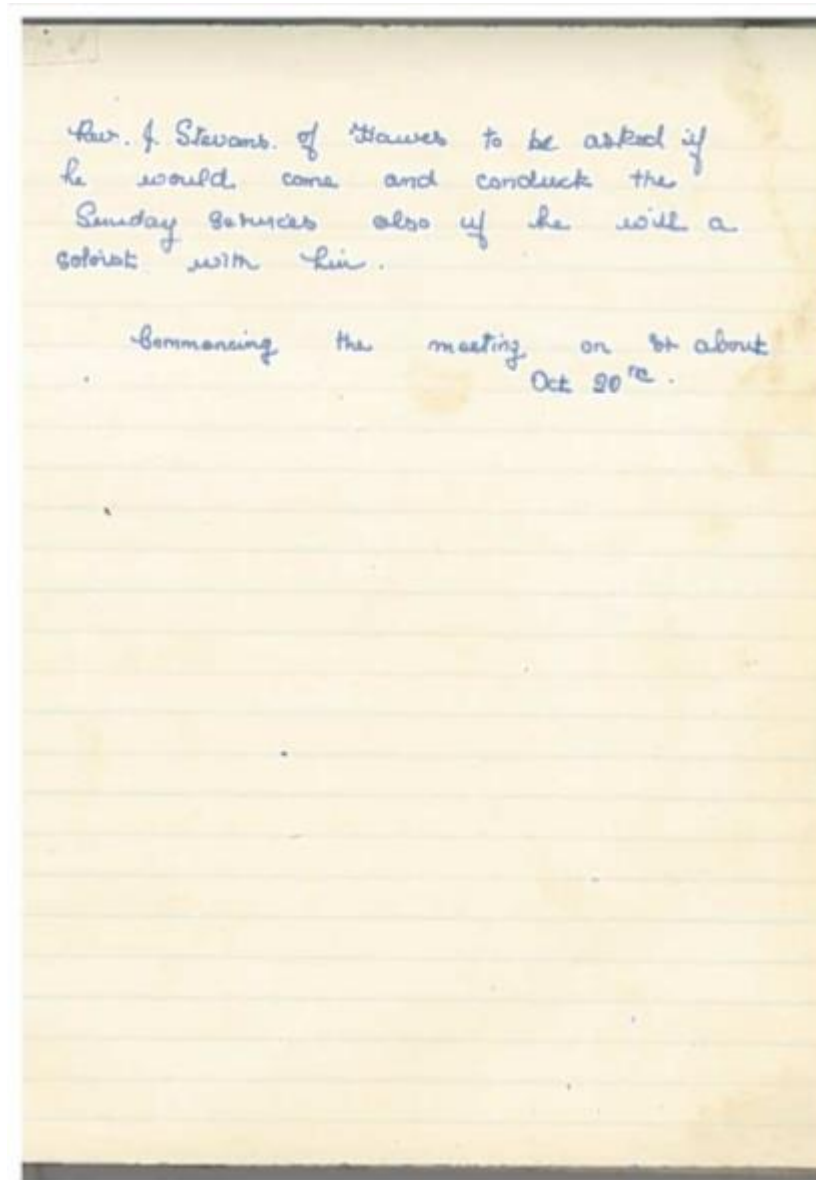 Rev. J. Stevans. of Hawes to be asked if
he would come and conduck the
Sunday services also if he will a
soloist with him.
Commencing the meeting on or about
Oct 20th.